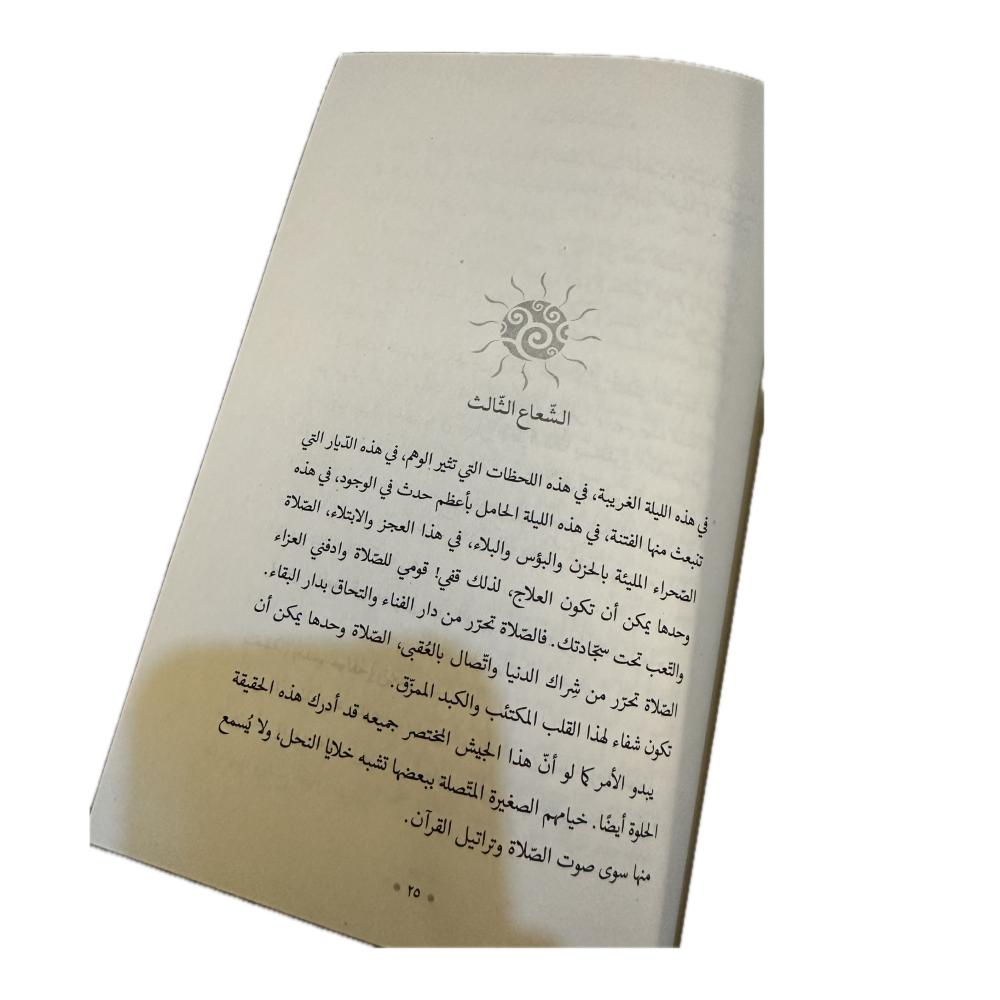 الشّعاع الثّالث
في هذه الليلة الغريبة، في هذه اللحظات التي تثير الوهم، في هذه الدّيار التي
تنبعث منها الفتنة، في هذه الليلة الحامل بأعظم حدث في الوجود، في هذه
الصّحراء المليئة بالحزن والبؤس والبلاء، في هذا العجز والابتلاء، الصّلاة
وحدها يمكن أن تكون العلاج، لذلك قفي! قومي للصّلاة وادفني العزاء
والتّعب تحت سجّادتك. فالصّلاة تحرّر من دار الفناء والتحاق بدار البقاء.
الصّلاة تحرّر من شِراك الدنيا واتّصال بالعُقبى، الصّلاة وحدها يمكن أن
تكون شفاء لهذا القلب المكتئب والكبد الممزّق.
يبدو الأمر كما لو أنّ هذا الجيش المختصر جميعه قد أدرك هذه الحقيقة
الحلوة أيضًا. خيامهم الصغيرة المتّصلة ببعضها تشبه خلايا النحل، ولا يُسمع
منها سوى صوت الصّلاة وتراتيل القرآن.
٢٥